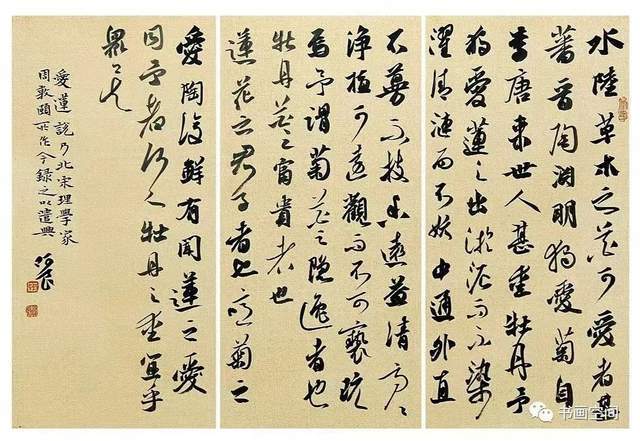 水陸草木之花可愛者甚
蕃晋陶淵明獨愛菊自
李唐来世人甚重牡丹予
獨愛蓮之出淤泥而不染
濯清漣而不妖中通外直
不蔓不枝香遠益清亭〻
淨植可遠觀而不可褻玩
焉予謂菊花之隐逸者也
牡丹花之富貴者也
蓮花之君子者也噫菊之
愛陶後鮮有聞蓮之愛
同予者何人牡丹之愛宜乎
眾矣
愛蓮說乃北宋理學家
周敦頤所作今録之以遣興
书画空间